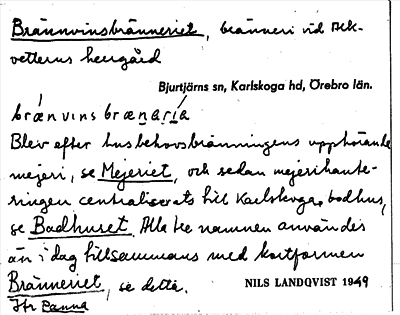 Brännvinsbränneriet, bränneri vid Alk-
vetterns herrgård
Bjurtjärns sn, Karlskoga hd, Örebro län.
brä́nvinsbrænɑría
Blev efter husbehovsbränningens upphörande
mejeri, se Mejeriet, och sedan mejerihante-
ringen centraliserats till Karlskoga, badhus,
se Badhuset. Alla tre namnen användes
än i dag tillsammans med kortformen
Bränneriet, se detta.
NILS LANDQVIST 1949
Jfr Panna